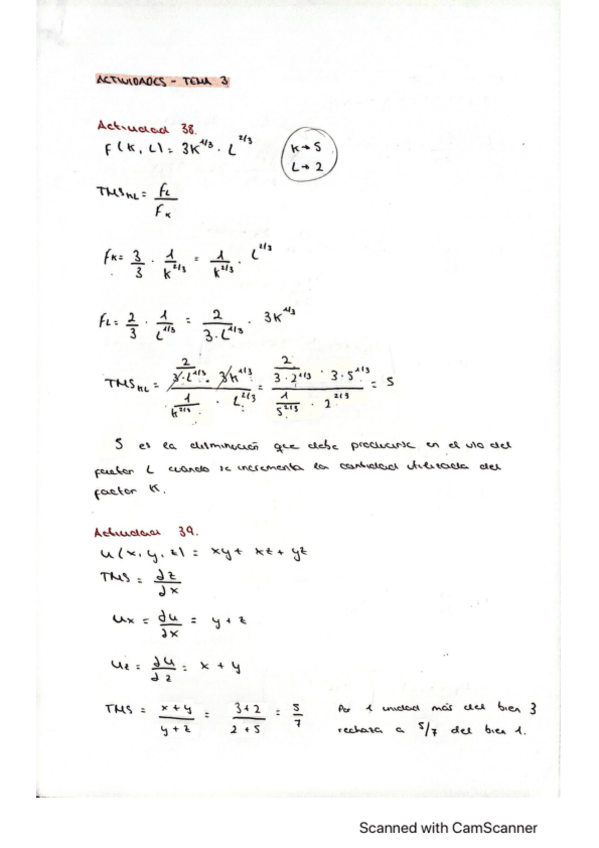 ACTIVIDADES - TEMA 3
Actividad 38.
F(K, L) = 3K^1/3 · L^2/3
K→5
L→2
TMS_KL = F_L / F_K
F_K = 3/3 · 1/K^2/3 = 1/K^2/3 · L^2/3
F_L = 2/3 · 1/L^1/3 = 2/3·L^1/3 · 3K^1/3
TMS_KL = (2/3·L^1/3 · 3K^1/3) / (1/K^2/3 · L^2/3) = (2/3·2^1/3 · 3·5^1/3) / (1/5^2/3 · 2^2/3) = 5
5 es la disminución que debe producirse en el uso del
factor L cuando se incrementa la cantidad utilizada del
factor K.
Actividad 39.
u(x, y, z) = xy + xz + yz
TMS = ∂z / ∂x
Ux = ∂u / ∂x = y + z
Uz = ∂u / ∂z = x + y
TMS = x+y / y+z = 3+2 / 2+5 = 5/7
Por 1 unidad más del bien 3
rechaza a 5/7 del bien 1.
Scanned with CamScanner